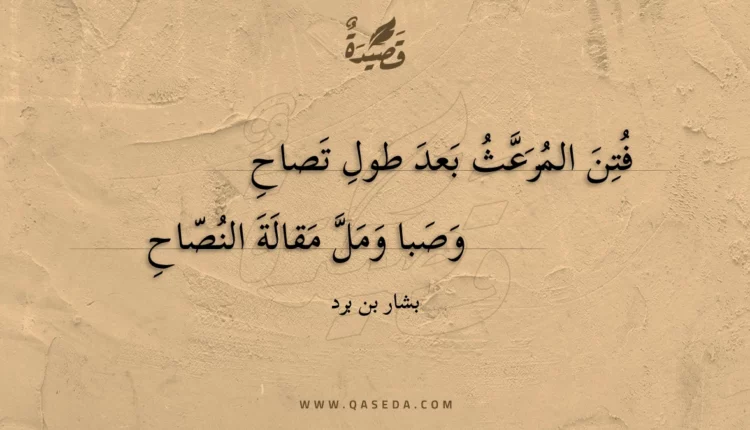 قَصِيدَةٌ
فُتِنَ المُرَعَّثُ بَعدَ طولِ تَصاحِ
وَصَبا وَمَلَّ مَقالَةَ النُصّاحِ
بشار بن برد
WWW.QASEDA.COM